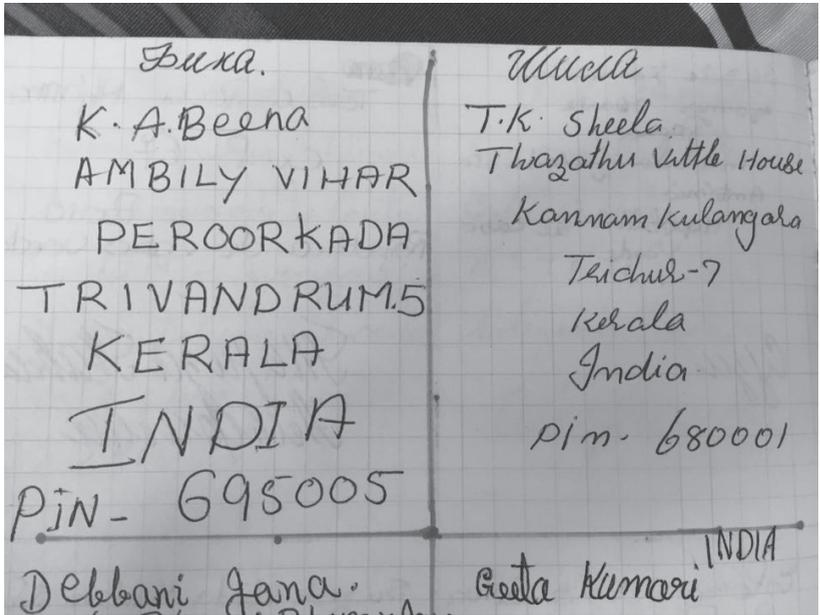 Бина.
K. A. Beena
AMBILY VIHAR
PEROORKADA
TRIVANDRUM.5
KERALA
INDIA
PiN- 695005
Шила
T.K. Sheela
Thazathu Vittle House
Kannam Kulangara
Trichur-7
Kerala
India
Pin. 680001
Debbani Jana.
INDIA
Geeta Kumari